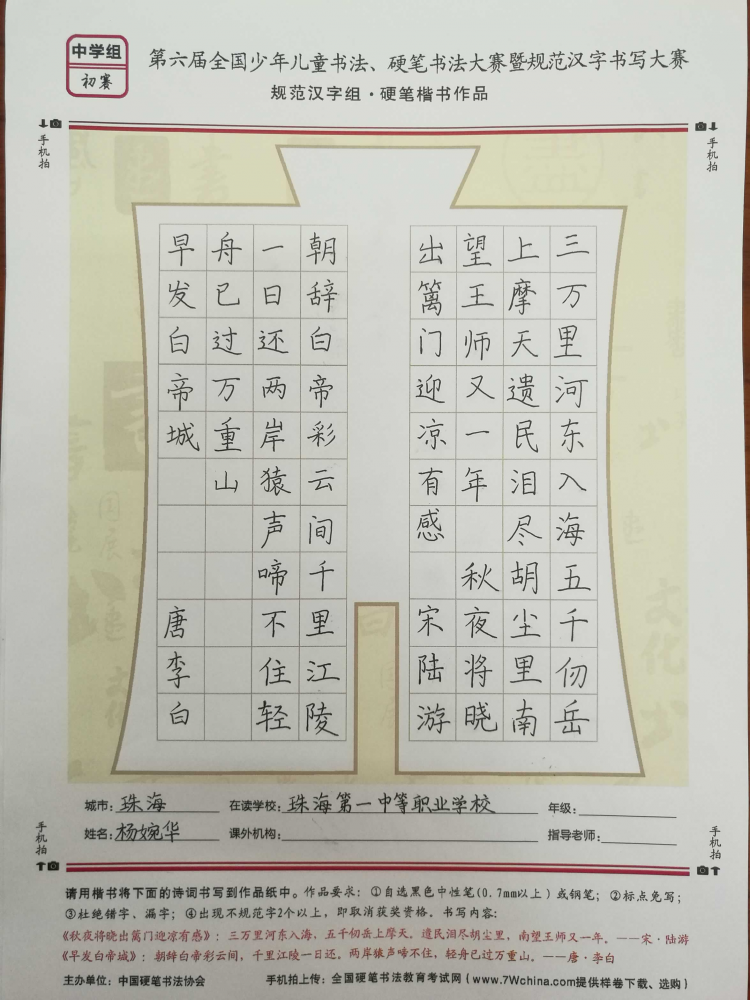 中学组
初赛
第六届全国少年儿童书法、硬笔书法大赛暨规范汉字书写大赛
规范汉字组·硬笔楷书作品
手机拍
手机拍
三万里河东入海五千仞岳
上摩天遗民泪尽胡尘里南
望王师又一年 秋夜将晓
出篱门迎凉有感 宋陆游
朝辞白帝彩云间千里江陵
一日还两岸猿声啼不住轻
舟已过万重山
早发白帝城 唐李白
城市:珠海 在读学校:珠海第一中等职业学校 年级:
姓名:杨婉华 课外机构: 指导老师:
手机拍
手机拍
请用楷书将下面的诗词书写到作品纸中。作品要求:①自选黑色中性笔(0.7mm以上)或钢笔;②标点免写;
③杜绝错字、漏字;④出现不规范字2个以上,即取消获奖资格。书写内容:
《秋夜将晓出篱门迎凉有感》:三万里河东入海,五千仞岳上摩天。遗民泪尽胡尘里,南望王师又一年。——宋·陆游
《早发白帝城》:朝辞白帝彩云间,千里江陵一日还。两岸猿声啼不住,轻舟已过万重山。——唐·李白
主办单位:中国硬笔书法协会 手机拍上传:全国硬笔书法教育考试网(www.7Wchina.com提供样卷下载、选购)